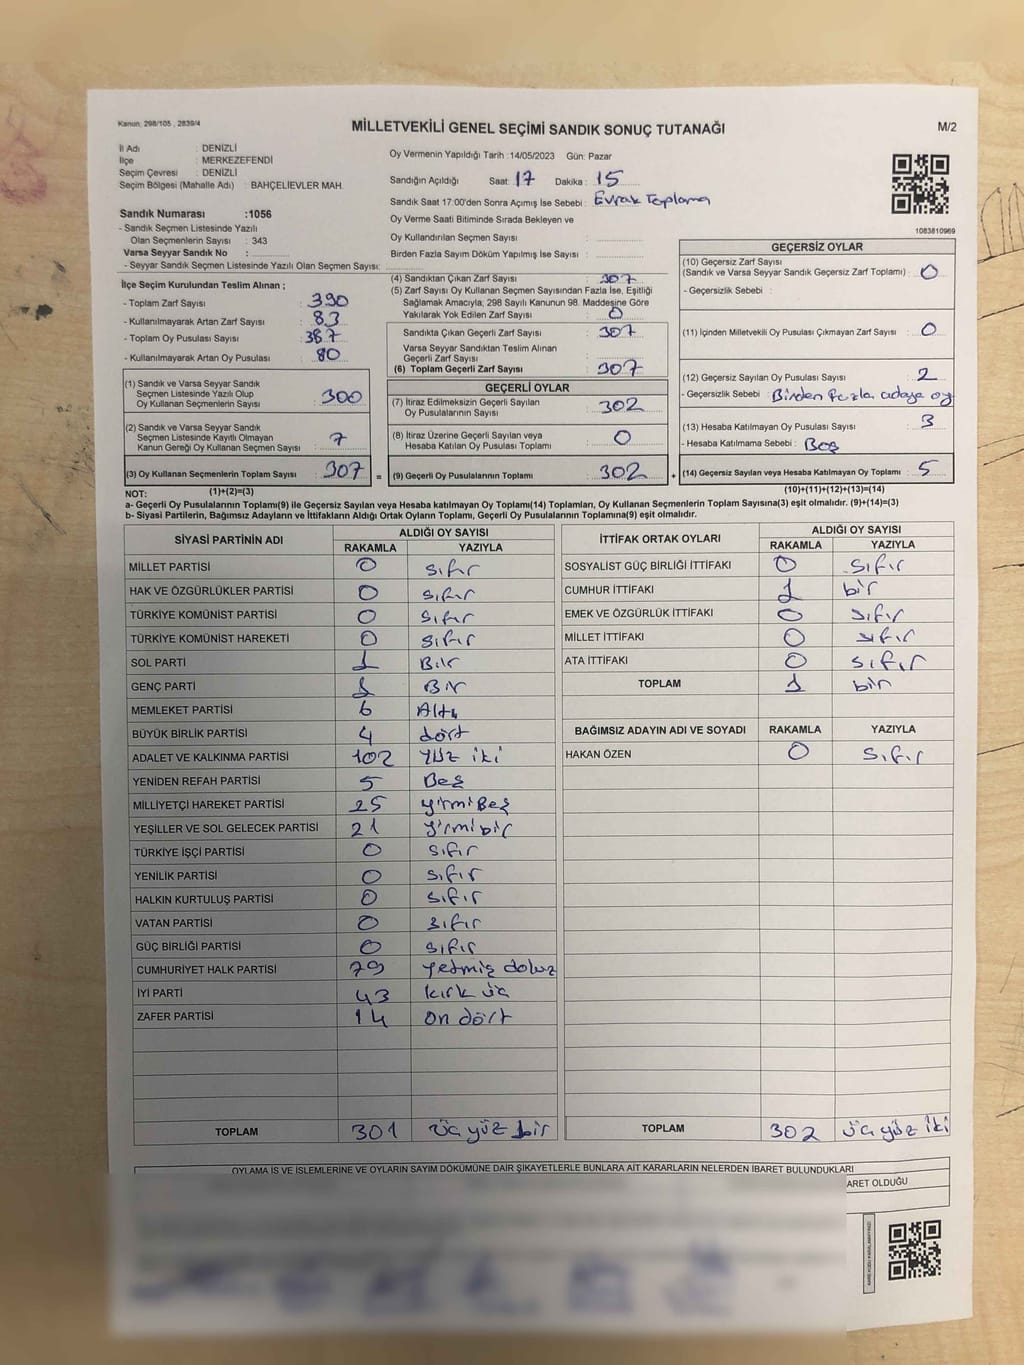 Kanun: 298/105 , 2839/4
MİLLETVEKİLİ GENEL SEÇİMİ SANDIK SONUÇ TUTANAĞI
M/2
İl Adı : DENİZLİ
İlçe : MERKEZEFENDİ
Seçim Çevresi : DENİZLİ
Seçim Bölgesi (Mahalle Adı) : BAHÇELİEVLER MAH.
Sandık Numarası :1056
- Sandık Seçmen Listesinde Yazılı
Olan Seçmenlerin Sayısı : 343
Varsa Seyyar Sandık No :
- Seyyar Sandık Seçmen Listesinde Yazılı Olan Seçmen Sayısı:
Oy Vermenin Yapıldığı Tarih :14/05/2023 Gün: Pazar
Sandığın Açıldığı Saat: 17 Dakika : 15
Sandık Saat 17:00'den Sonra Açımış İse Sebebi : Evrak Toplama
Oy Verme Saati Bitiminde Sırada Bekleyen ve
Oy Kullandırılan Seçmen Sayısı :
Birden Fazla Sayım Döküm Yapılmış İse Sayısı :
1083810969
İlçe Seçim Kurulundan Teslim Alınan ;
- Toplam Zarf Sayısı : 390
- Kullanılmayarak Artan Zarf Sayısı : 83
- Toplam Oy Pusulası Sayısı : 387
- Kullanılmayarak Artan Oy Pusulası : 80
(1) Sandık ve Varsa Seyyar Sandık
Seçmen Listesinde Yazılı Olup
Oy Kullanan Seçmenlerin Sayısı : 300
(2) Sandık ve Varsa Seyyar Sandık
Seçmen Listesinde Kayıtlı Olmayan
Kanun Gereği Oy Kullanan Seçmen Sayısı : 7
(3) Oy Kullanan Seçmenlerin Toplam Sayısı : 307 =
(4) Sandıktan Çıkan Zarf Sayısı : 307
(5) Zarf Sayısı Oy Kullanan Seçmen Sayısından Fazla İse, Eşitliği
Sağlamak Amacıyla, 298 Sayılı Kanunun 98. Maddesine Göre
Yakılarak Yok Edilen Zarf Sayısı : 0
Sandıkta Çıkan Geçerli Zarf Sayısı : 307
Varsa Seyyar Sandıktan Teslim Alınan
Geçerli Zarf Sayısı :
(6) Toplam Geçerli Zarf Sayısı : 307
GEÇERLİ OYLAR
(7) İtiraz Edilmeksizin Geçerli Sayılan
Oy Pusulalarının Sayısı : 302
(8) İtiraz Üzerine Geçerli Sayılan veya
Hesaba Katılan Oy Pusulası Toplamı : 0
(9) Geçerli Oy Pusulalarının Toplamı : 302 +
GEÇERSİZ OYLAR
(10) Geçersiz Zarf Sayısı
(Sandık ve Varsa Seyyar Sandık Geçersiz Zarf Toplamı) : 0
- Geçersizlik Sebebi :
(11) İçinden Milletvekili Oy Pusulası Çıkmayan Zarf Sayısı : 0
(12) Geçersiz Sayılan Oy Pusulası Sayısı : 2
- Geçersizlik Sebebi : Birden fazla adaya oy
(13) Hesaba Katılmayan Oy Pusulası Sayısı : 3
- Hesaba Katılmama Sebebi : Boş
(14) Geçersiz Sayılan veya Hesaba Katılmayan Oy Toplamı : 5
NOT: (1)+(2)=(3) (10)+(11)+(12)+(13)=(14)
a- Geçerli Oy Pusulalarının Toplamı(9) ile Geçersiz Sayılan veya Hesaba katılmayan Oy Toplamı(14) Toplamları, Oy Kullanan Seçmenlerin Toplam Sayısına(3) eşit olmalıdır. (9)+(14)=(3)
b- Siyasi Partilerin, Bağımsız Adayların ve İttifakların Aldığı Ortak Oyların Toplamı, Geçerli Oy Pusulalarının Toplamına(9) eşit olmalıdır.
SİYASİ PARTİNİN ADI ALDIĞI OY SAYISI
RAKAMLA YAZIYLA
MİLLET PARTİSİ 0 sıfır
HAK VE ÖZGÜRLÜKLER PARTİSİ 0 sıfır
TÜRKİYE KOMÜNİST PARTİSİ 0 sıfır
TÜRKİYE KOMÜNİST HAREKETİ 0 sıfır
SOL PARTİ 1 Bir
GENÇ PARTİ 1 Bir
MEMLEKET PARTİSİ 6 Altı
BÜYÜK BİRLİK PARTİSİ 4 dört
ADALET VE KALKINMA PARTİSİ 102 Yüz iki
YENİDEN REFAH PARTİSİ 5 Beş
MİLLİYETÇİ HAREKET PARTİSİ 25 yirmi Beş
YEŞİLLER VE SOL GELECEK PARTİSİ 21 yirmi bir
TÜRKİYE İŞÇİ PARTİSİ 0 sıfır
YENİLİK PARTİSİ 0 sıfır
HALKIN KURTULUŞ PARTİSİ 0 sıfır
VATAN PARTİSİ 0 sıfır
GÜÇ BİRLİĞİ PARTİSİ 0 sıfır
CUMHURİYET HALK PARTİSİ 79 yetmiş dokuz
İYİ PARTİ 43 kırk üç
ZAFER PARTİSİ 14 on dört
TOPLAM 301 üç yüz bir
İTTİFAK ORTAK OYLARI ALDIĞI OY SAYISI
RAKAMLA YAZIYLA
SOSYALİST GÜÇ BİRLİĞİ İTTİFAKI 0 sıfır
CUMHUR İTTİFAKI 1 bir
EMEK VE ÖZGÜRLÜK İTTİFAKI 0 sıfır
MİLLET İTTİFAKI 0 sıfır
ATA İTTİFAKI 0 sıfır
TOPLAM 1 bir
BAĞIMSIZ ADAYIN ADI VE SOYADI RAKAMLA YAZIYLA
HAKAN ÖZEN 0 sıfır
TOPLAM 302 üç yüz iki
OYLAMA İŞ VE İŞLEMLERİNE VE OYLARIN SAYIM DÖKÜMÜNE DAİR ŞİKAYETLERLE BUNLARA AİT KARARLARIN NELERDEN İBARET BULUNDUKLARI
ARET OLDUĞU